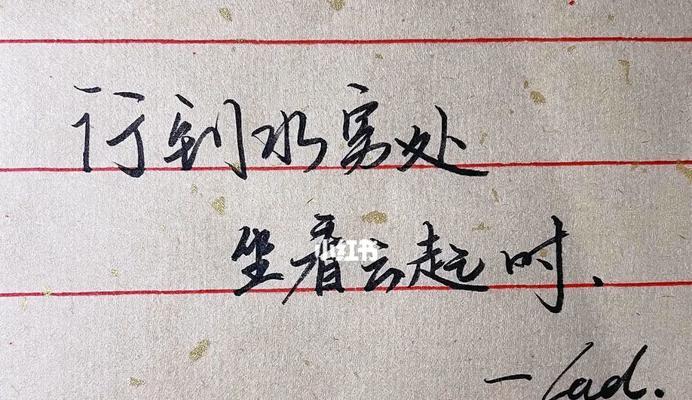 行到水穷处
坐看云起时、
小红书